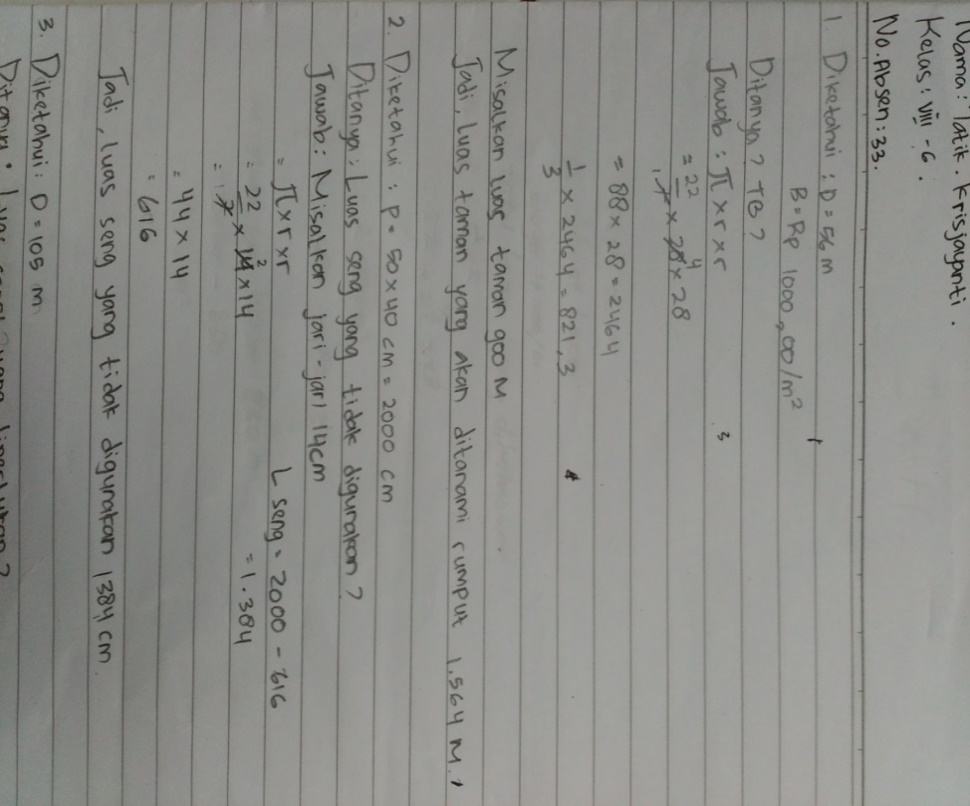 Nama: Tatik. Krisjayanti.
Kelas: VIII - G.
No. Absen: 33.
1. Diketahui: D = 56 m
B = Rp 1000,00/m²
Ditanya? TB?
Jawab: π x r x r
= 22/7 x 28 x 28
1 4
= 88 x 28 = 2464
1/3 x 2464 = 821,3
Misalkan luas taman 900 M
Jadi, luas taman yang akan ditanami rumput 1.564 M.
2. Diketahui: P = 50 x 40 cm = 2000 cm
Ditanya: Luas seng yang tidak digunakan?
Jawab: Misalkan jari-jari 14cm
= π x r x r L seng = 2000 - 616
= 22/7 x 14 x 14 = 1.384
1 2
= 44 x 14
= 616
Jadi, luas seng yang tidak digunakan 1384 cm.
3. Diketahui: D = 105 m
Ditanya: